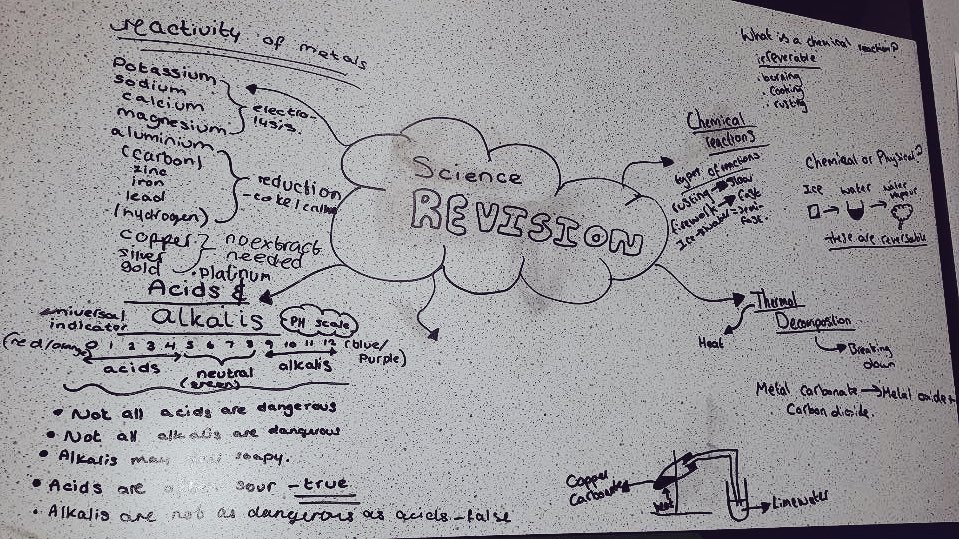 reactivity of metals
Potassium
sodium
calcium
magnesium
electro-
lysis.
aluminium
(carbon)
zinc
iron
lead
(hydrogen)
reduction
copper
silver
gold
no extract
needed
• platinum
Science
REVISION
Acids &
alkalis
universal
indicator
PH scale
(red/orange) 0 1 2 3 4 5 6 7 8 9 10 11 12 (blue/
Purple)
acids
neutral
(green)
alkalis
• Not all acids are dangerous
• Not all alkalis are dangerous
• Alkalis may soapy.
• Acids are often sour - true
• Alkalis are not as dangerous as acids - false
What is a chemical reaction?
irreverable
• burning
• cooking
• rusting
Chemical
reactions
types of reactions
rusting → slow
firework → fast
Ice → water =
fast.
Chemical or Physical?
Ice
water
water
vapour
these are reversable
Thermal
Decompostion
Heat
Breaking
down
Metal carbonate → Metal oxide +
Carbon dioxide.
Copper
Carbonate
heat
Limewater